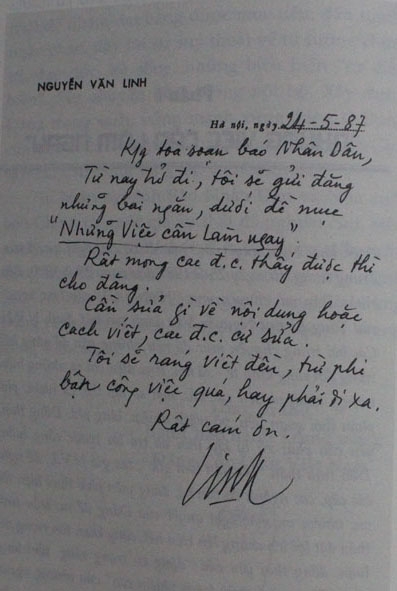 NGUYỄN VĂN LINH
Hà nội, ngày 24-5-87
K/g toà soạn báo Nhân Dân,
Từ nay trở đi, tôi sẽ gửi đăng
những bài ngắn, dưới đề mục
"Những Việc cần Làm ngay".
Rất mong các đ.c. thấy được thì
cho đăng.
Cần sửa gì về nội dung hoặc
cách viết, các đ.c. cứ sửa.
Tôi sẽ ráng viết đều, trừ phi
bận công việc quá, hay phải đi xa.
Rất cám ơn.
Linh